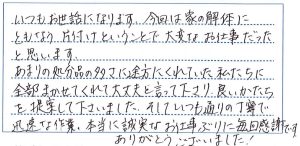 いつもお世話になります。今回は家の解体に
ともなう片付けということで大変なお仕事だった
と思います。
あまりの処分品の多さに途方にくれていた私たちに
全部まかせてくれて大丈夫と言って下さり、良いかたち
を提案して下さいました。そしていつも通りの丁寧で
迅速な作業、本当に誠実なお仕事ぶりに毎回感謝です
ありがとうございました！